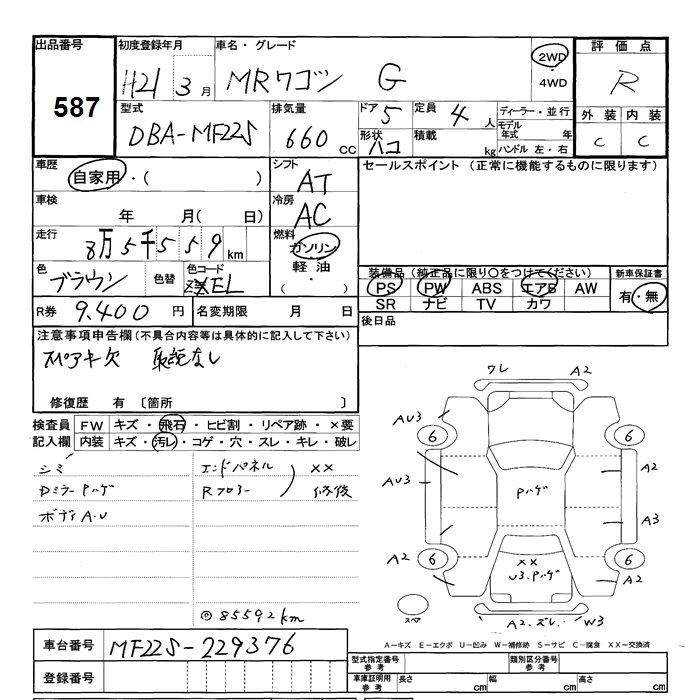 出品番号 初度登録年月 車名・グレード 評価点
587 H21年 3月 MRワゴン G 2WD・4WD R
型式 排気量 ドア 5 定員 4人 ディーラー・並行 外装 内装
DBA-MF22S 660cc 形状 ハコ 積載 kg モデル年式 年 C C
ハンドル 左・右
車歴 シフト セールスポイント (正常に機能するものに限ります)
自家用・( ) AT
車検 冷房
年 月( 日) AC
走行 燃料
8万5千559km ガソリン・軽油
装備品(純正品に限り○をつけてください) 新車保証書
色 ブラウン 色替 色コード ZEL PS PW ABS エアB AW 有・無
SR ナビ TV カワ
R券 9,400円 名変期限 月 日 後日品
注意事項申告欄(不具合内容等は具体的に記入して下さい)
スペアキ欠 取説なし
修復歴 有 〔箇所 〕
検査員 FW キズ・飛石・ヒビ割・リペア跡・×要
記入欄 内装 キズ・汚レ・コゲ・穴・スレ・キレ・破レ
シミ エンドパネル XX
Dミラー Pハゲ Rフロアー 修後
ボディA.U
◎85592km
ワレ A2
AU3 6 6
AU3 Pハゲ A2
A3
A2 6 XX 6 A2
U3.Pハゲ
スペア A2.ズレ. W3
車台番号 MF22S-229376
A-キズ E-エクボ U-凹み W-補修跡 S-サビ C-腐食 XX-交換済
登録番号 型式指定番号 参考 類別区分番号 参考
車庫証明用 参考 長さ cm 幅 cm 高さ cm